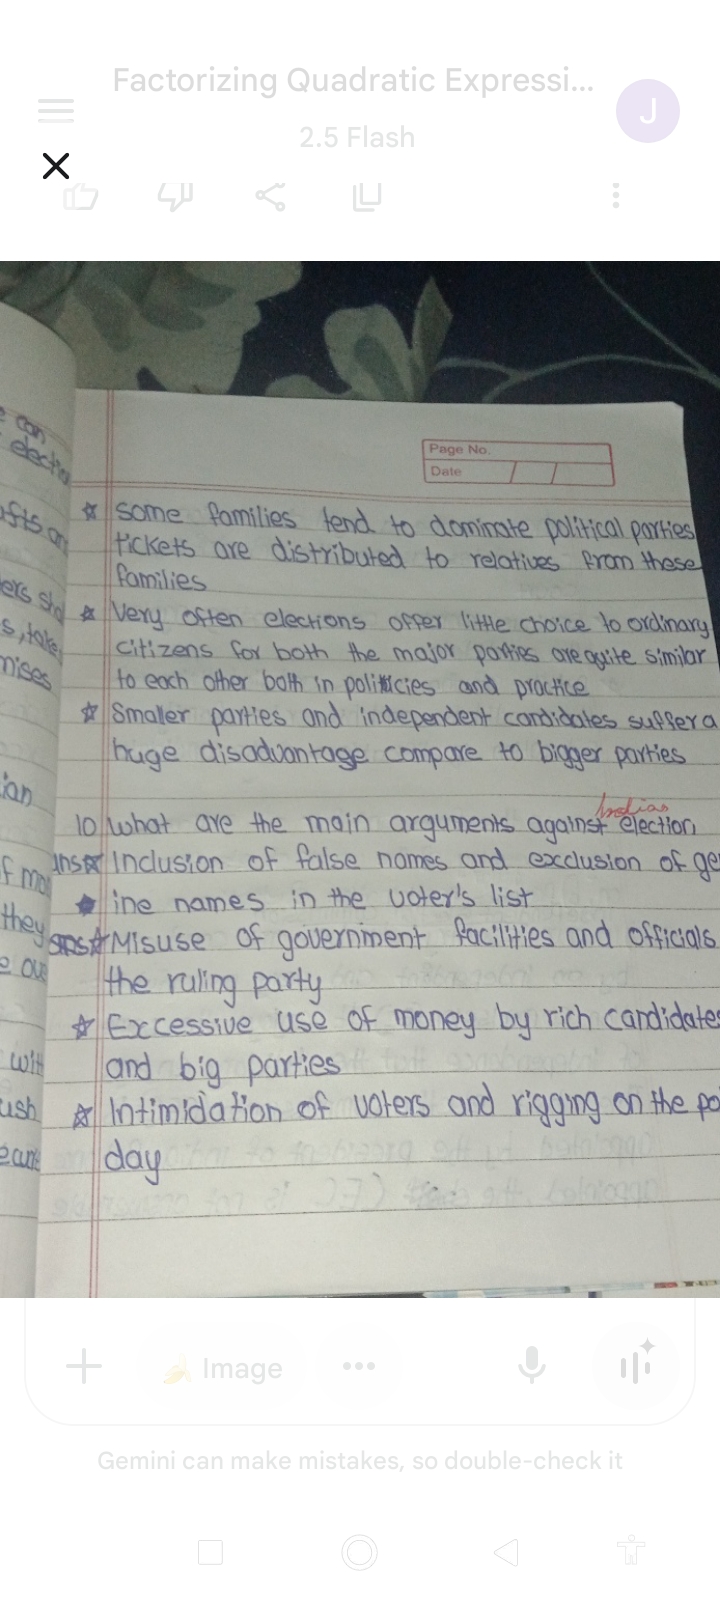 Factorizing Quadratic Expressi...
J
2.5 Flash
Page No.
Date
e can
electio
some families tend to dominate political parties
tickets are distributed to relatives from these
families
Very often elections offer little choice to ordinary
citizens for both the major parties are quite similar
to each other both in politicies and practice
Smaller parties and independent candidates suffer a
huge disadvantage compare to bigger parties
Indian
10 What are the main arguments against election
Ans Inclusion of false names and exclusion of ge
ine names in the voter's list
Misuse of government facilities and officials
the ruling party
Excessive use of money by rich candidates
and big parties
Intimidation of voters and rigging on the po
day
mises
ian
they
wit
ush
Image
Gemini can make mistakes, so double-check it